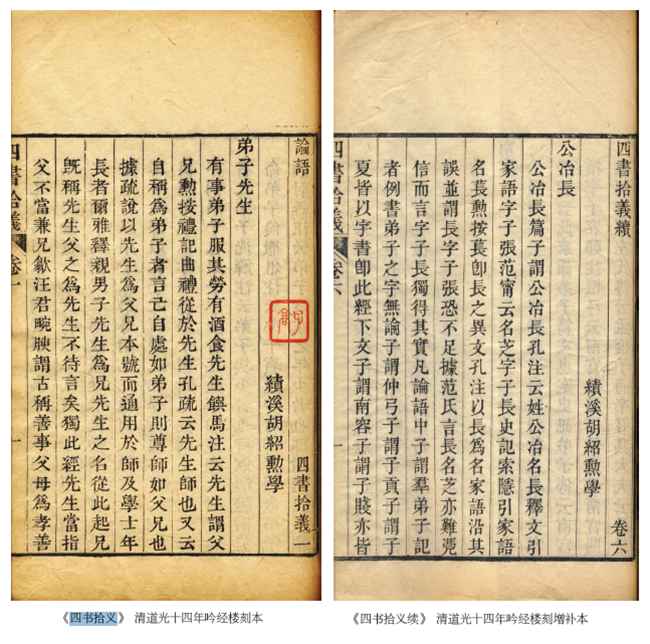 論語
四書拾義一
績溪胡紹勳學
弟子先生
有事弟子服其勞有酒食先生饌馬注云先生謂父
兄勳按禮記曲禮從於先生孔疏云先生師也又云
自稱爲弟子者言己自處如弟子則尊師如父兄也
據疏說以先生爲父兄本號而通用於師及學士年
長者爾雅釋親男子先生爲兄先生之名從此起兄
旣稱先生父之爲先生不待言矣獨此經先生當指
父不當兼兄歙汪君畹腴謂古稱善事父母爲孝善
四書拾義
卷一
一
四書拾義續
卷六
績溪胡紹勳學
公冶長
公冶長篇子謂公冶長孔注云姓公冶名長釋文引
家語字子張范甯云名芝字子長史記索隱引家語
名萇勳按萇卽長之異文孔注以長爲名家語沿其
誤並謂長字子張恐不足據范氏言長名芝亦難凭
信而言字子長獨得其實凡論語中子謂羣弟子記
者例書弟子之字無論子謂仲弓子謂子貢子謂子
夏皆以字書卽此經下文子謂南容子謂子賤亦皆
四書拾義
卷六
一
《四书拾义》 清道光十四年吟经楼刻本
《四书拾义续》 清道光十四年吟经楼刻增补本